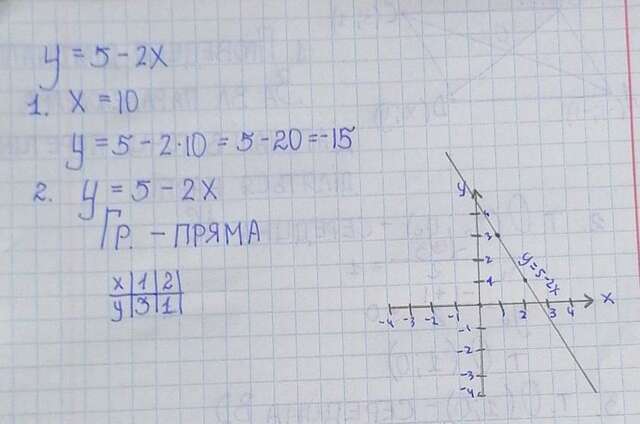 y = 5 - 2x
1. x = 10
y = 5 - 2·10 = 5 - 20 = -15
2. y = 5 - 2x
Гр. - ПРЯМА
x 1 2
y 3 1
y
4
3
2
1
y=5-2x
-4 -3 -2 -1 1 2 3 4 x
-1
-2
-3
-4